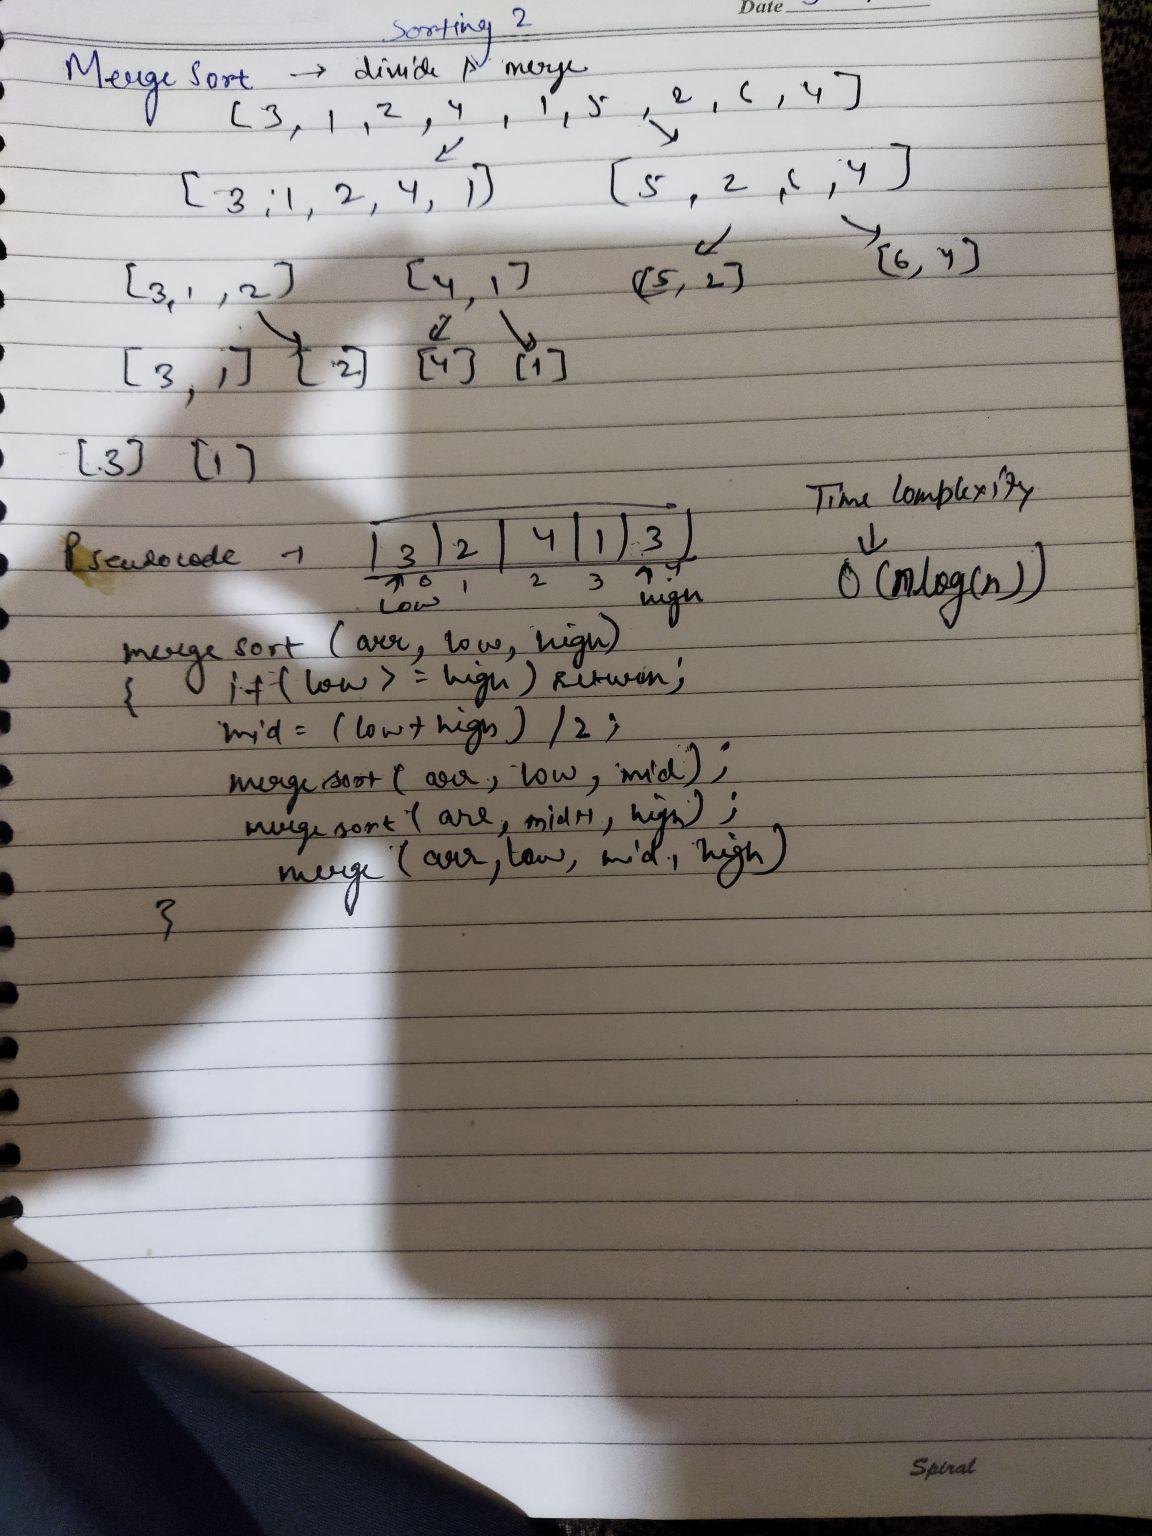 Date
Sorting 2
Merge Sort → divide & merge
[3, 1, 2, 4, 1, 5, 2, 6, 4]
[3, 1, 2, 4, 1] [5, 2, 6, 4]
[3, 1, 2] [4, 1] [5, 2] [6, 4]
[3, 1] [2] [4] [1]
[3] [1]
Time Complexity
Pseudocode → | 3 | 2 | 4 | 1 | 3 |
0 1 2 3 4
low high
O(nlog(n))
merge sort (arr, low, high)
{ if (low >= high) return;
mid = (low + high) / 2;
merge sort (arr, low, mid);
merge sort (arr, mid+1, high);
merge (arr, low, mid, high)
}
Spiral